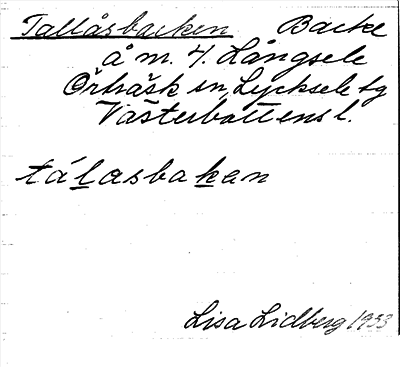 Tallåsbacken Backe
å m. 4. Långsele
Örträsk sn, Lycksele tg
Västerbottens l.
tálasbakan
Lisa Lidberg 1933